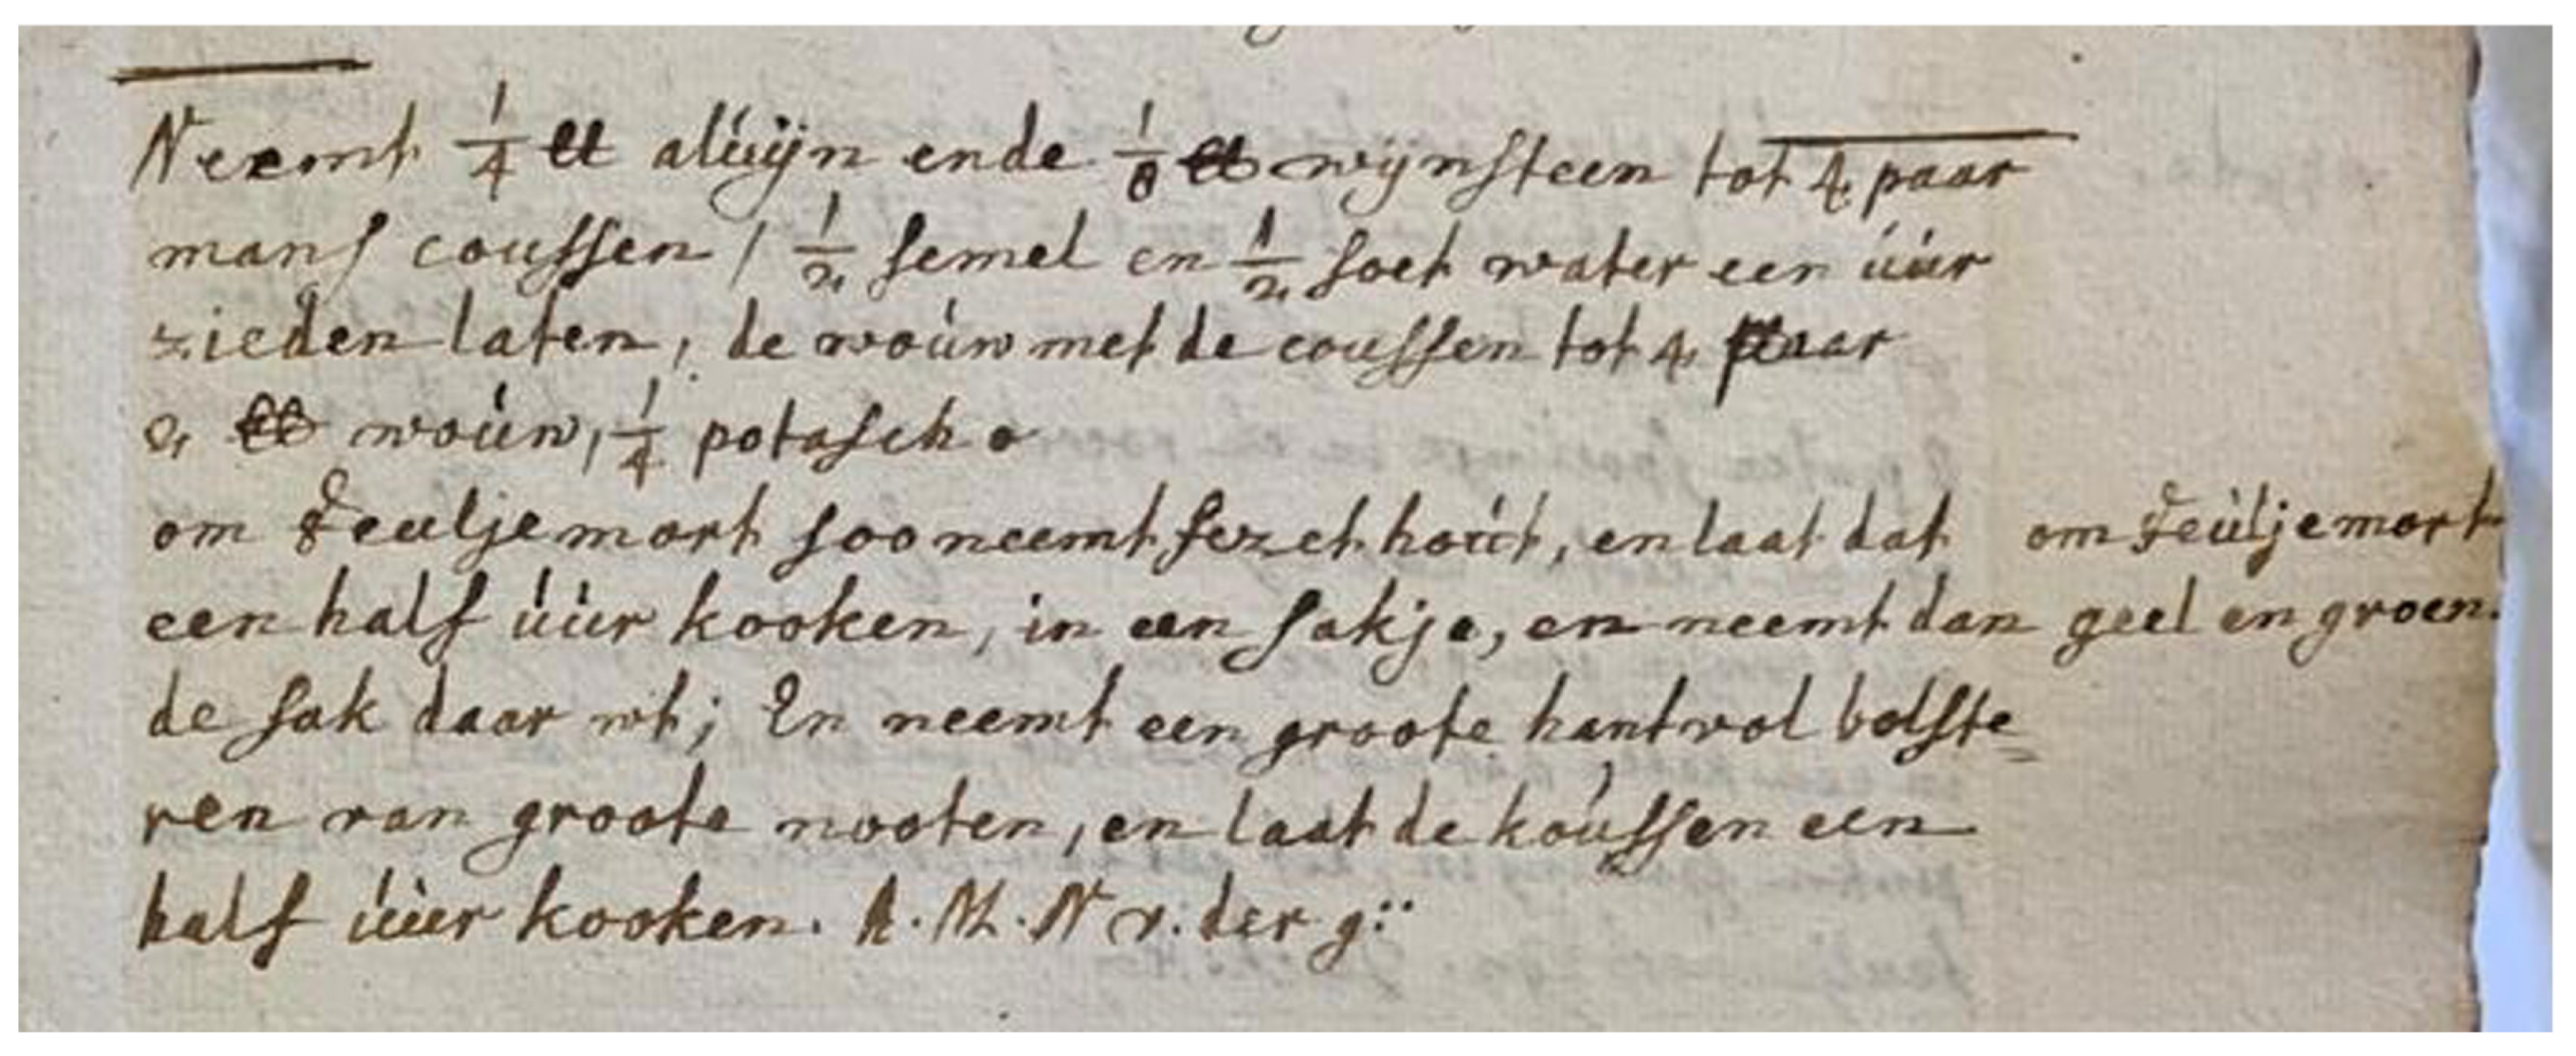 Neemt 1/4 ℔ alúijn ende 1/8 ℔ wijnsteen tot 4 paar
mans coussen / 1/2 semel en 1/2 soet water een úúr
zieden laten, de woúw met de coussen tot 4 paar
2 ℔ woúw, 1/4 potasch.
om Feuljemort soo neemt fezet hoút, en laat dat
een half úúr kooken, in een sakje, en neemt dan
de sak daar wt; En neemt een groote hantvol bolste
ren van groote nooten, en laat de koússen een
half úúr kooken. A. M. N v. der g:
om Feúljemort
geel en groen.